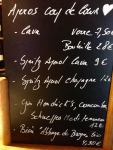 Apéros Coup de Coeur
- Cava Verre 7,50€
Bouteille 28€
- Spritz Aperol Cava 9€
- Spritz Aperol champagne 12€
- Gin Hendrick's, concombre
Schweppes
12€
- Bière "Abbaye de